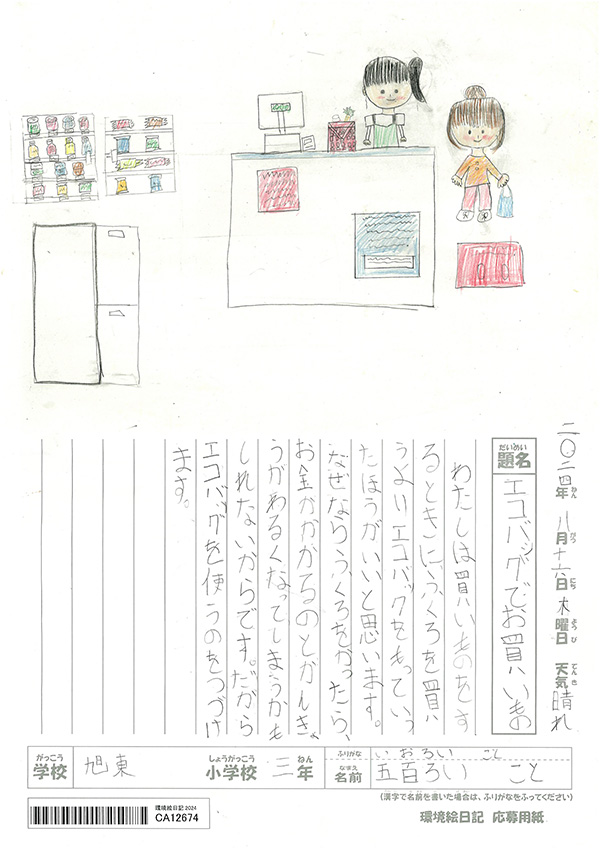 二〇二四年 八月十六日 木曜日 天気 晴れ
ねん がつ にち ようび てんき
だいめい
題名
エコバッグでお買いもの
わたしは買いものをす
るときにふくろを買
うよりエコバックをもっていっ
たほうがいいと思います。
なぜならふくろをかったら、
お金がかかるのとかんきょ
うがわるくなってしまうかも
しれないからです。だから
エコバッグを使うのをつづけ
ます。
がっこう
学校
旭東
しょうがっこう
小学校
三
ねん
年
ふりがな
いおろい こと
なまえ
名前
五百ろい こと
(漢字で名前を書いた場合は、ふりがなをふってください)
環境絵日記 2024
CA12674
環境絵日記 応募用紙